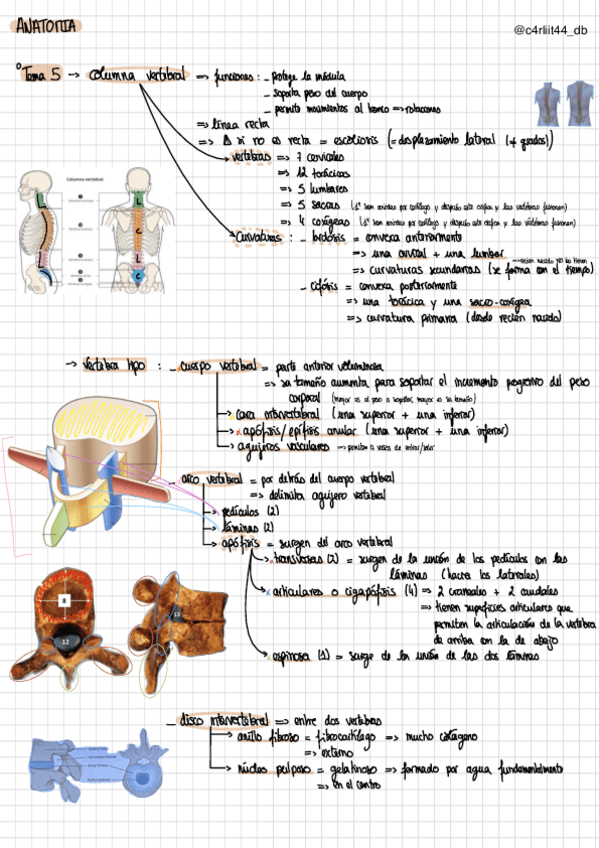 ANATOMIA
@c4rliit44_db
Tema 5 → columna vertebral ⇒ funciones: - protege la médula
- soporta peso del cuerpo
- permite movimientos al tronco ⇒ rotaciones
⇒ línea recta
⇒ Δ si no es recta = escoliosis (= desplazamiento lateral (≠ grados))
vértebras ⇒ 7 cervicales
⇒ 12 torácicas
⇒ 5 lumbares
⇒ 5 sacras (1º son unidas por cartílago y después este osifica y las vértebras fusionan)
⇒ 4 coxígeas (1º son unidas por cartílago y después este osifica y las vértebras fusionan)
Columna vertebral
Curvaturas: - lordosis = convexa anteriormente
⇒ una cervical + una lumbar
⇒ curvaturas secundarias (se forma con el tiempo)
- cifosis = convexa posteriormente
⇒ una torácica y una sacro-coxígea
⇒ curvatura primaria (desde recién nacido)
→ vértebra tipo: - cuerpo vertebral = parte anterior voluminosa
⇒ su tamaño aumenta para soportar el incremento progresivo del peso
corporal (mayor es el peso a soportar, mayor es su tamaño)
→ cara intervertebral (una superior + una inferior)
→ apófisis/epífisis anular (una superior + una inferior)
→ agujeros vasculares → permiten a vasos de entrar/salir
- arco vertebral = por detrás del cuerpo vertebral
⇒ delimita agujero vertebral
→ pedículos (2)
→ láminas (2)
→ apófisis = surgen del arco vertebral
→ transversas (2) = surgen de la unión de los pedículos con las
láminas (hacia los laterales)
→ articulares o cigapófisis (4) ⇒ 2 craneales + 2 caudales
⇒ tienen superficies articulares que
permiten la articulación de la vértebra
de arriba con la de abajo
→ espinosa (1) = surge de la unión de las dos láminas
8
12
13
- disco intervertebral ⇒ entre dos vértebras
→ anillo fibroso = fibrocartílago ⇒ mucho colágeno
⇒ externo
→ núcleo pulposo = gelatinoso ⇒ formado por agua fundamentalmente
⇒ en el centro